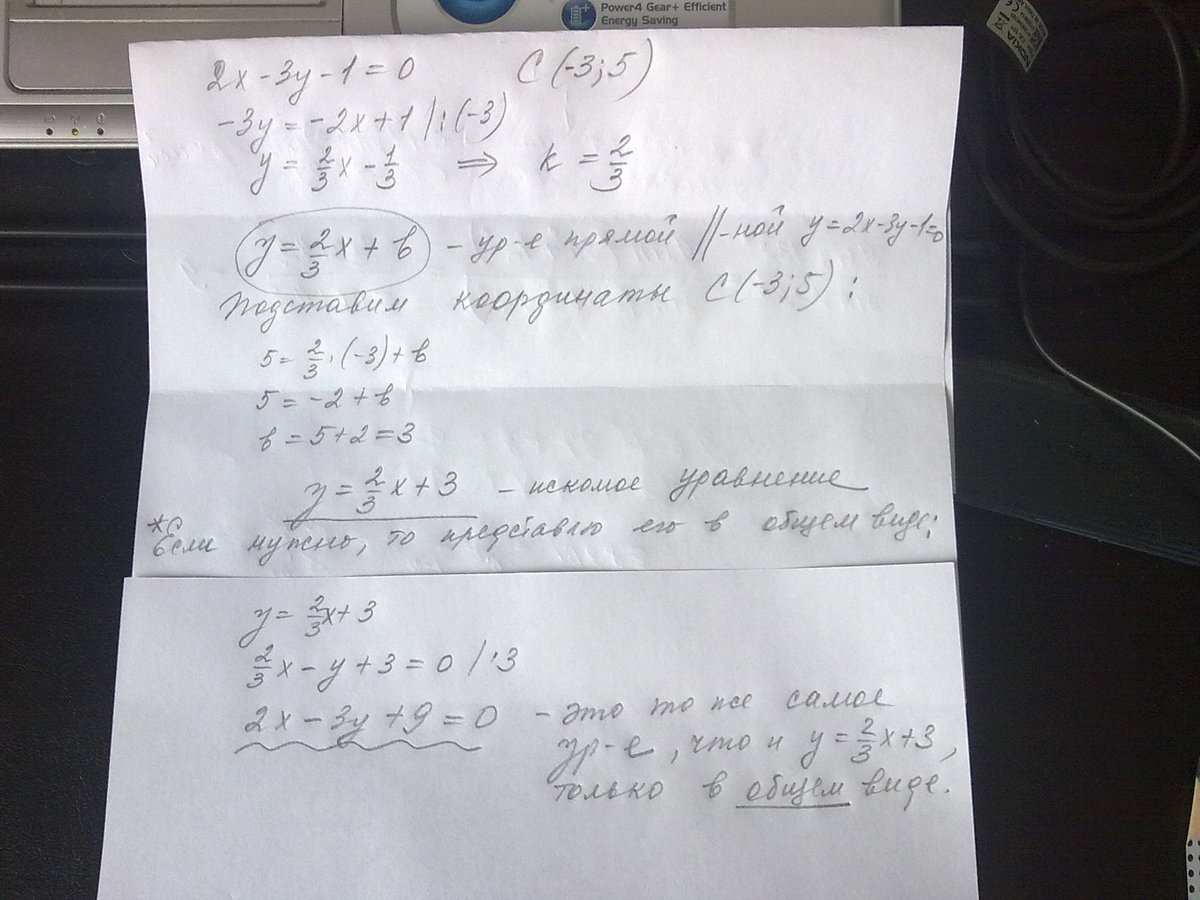 Power4 Gear+ Efficient
Energy Saving
NOKIA
2x - 3y - 1 = 0 C (-3; 5)
-3y = -2x + 1 | : (-3)
y = 2/3 x - 1/3 ⇒ k = 2/3
y = 2/3 x + b - ур-е прямой ||-ной y = 2x-3y-1=0
Подставим координаты C (-3; 5) :
5 = 2/3 · (-3) + b
5 = -2 + b
b = 5 + 2 = 3
y = 2/3 x + 3 - искомое уравнение
*Если нужно, то представлю его в общем виде:
y = 2/3 x + 3
2/3 x - y + 3 = 0 / ·3
2x - 3y + 9 = 0 - это то же самое
ур-е, что и y = 2/3 x + 3,
только в общем виде.